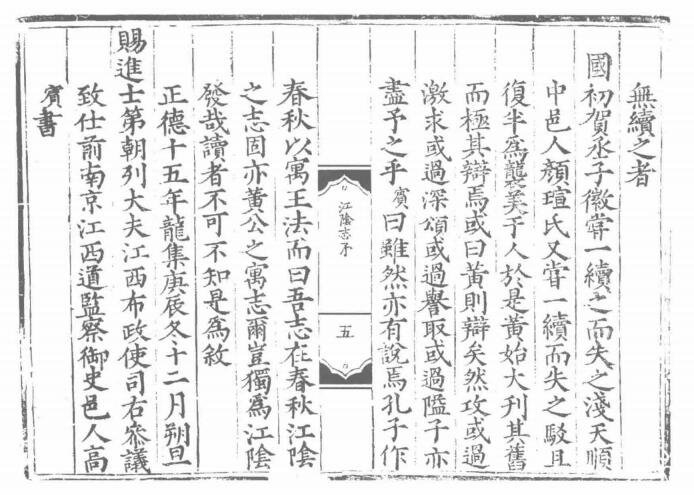 無續之者
國初賀丞子徽嘗一續之而失之淺天順
中邑人顏瑄氏又嘗一續而失之駁且
復半爲襲美于人於是黃始大刊其舊
而極其辯焉或曰黃則辯矣然攻或過
激求或過深頌或過譽取或過隘子亦
盡予之乎賓曰雖然亦有說焉孔子作
江陰志序
五
春秋以寓王法而曰吾志在春秋江陰
之志固亦黃公之寓志爾豈獨爲江陰
發哉讀者不可不知是爲敘
正德十五年龍集庚辰冬十二月朔旦
賜進士第朝列大夫江西布政使司右叅議
致仕前南京江西道監察御史邑人高
賓書